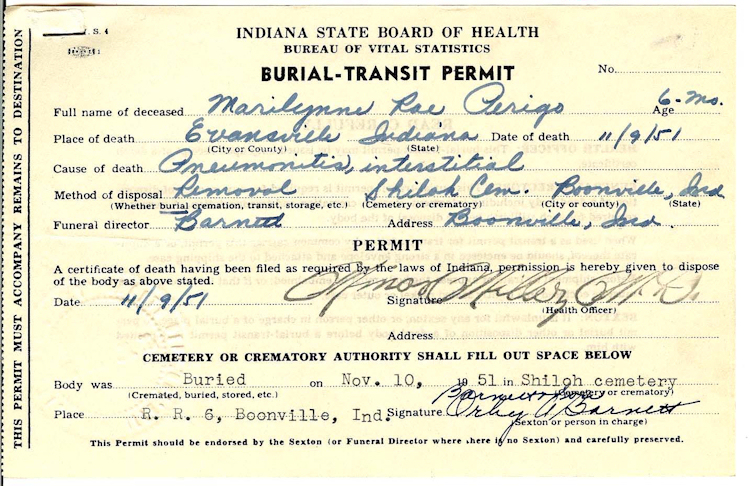 V. S. 4
INDIANA STATE BOARD OF HEALTH
BUREAU OF VITAL STATISTICS
BURIAL-TRANSIT PERMIT
No.
Full name of deceased Marilynne Rae Perigo Age 6-mo.
Place of death Evansville Indiana Date of death 11/9/51
(City or County) (State)
Cause of death Pneumonitis, interstitial
Method of disposal Removal Shiloh Cem. Boonville, Ind
(Whether burial cremation, transit, storage, etc.) (Cemetery or crematory) (City or county) (State)
Funeral director Barnett Address Boonville, Ind.
PERMIT
A certificate of death having been filed as required by the laws of Indiana, permission is hereby given to dispose
of the body as above stated.
Date 11/9/51 Signature Miller M.D.
(Health Officer)
Address
CEMETERY OR CREMATORY AUTHORITY SHALL FILL OUT SPACE BELOW
Body was Buried on Nov. 10, 1951 in Shiloh cemetery
(Cremated, buried, stored, etc.) (Cemetery or crematory)
Place R. R. 6, Boonville, Ind. Signature Orby A Barnett
(Sexton or person in charge)
This Permit should be endorsed by the Sexton (or Funeral Director where there is no Sexton) and carefully preserved.
THIS PERMIT MUST ACCOMPANY REMAINS TO DESTINATION